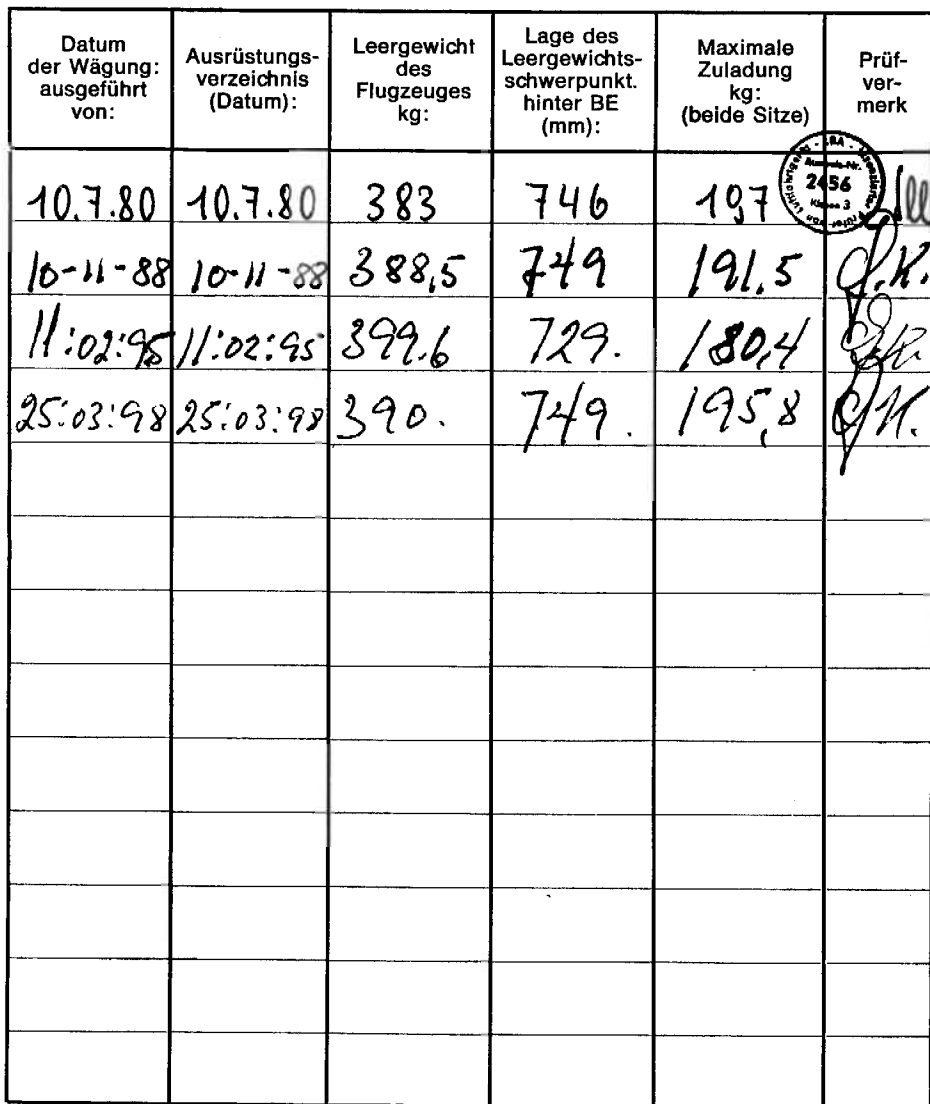 Datum
der Wägung:
ausgeführt
von:
Ausrüstungs-
verzeichnis
(Datum):
Leergewicht
des
Flugzeuges
kg:
Lage des
Leergewichts-
schwerpunkt.
hinter BE
(mm):
Maximale
Zuladung
kg:
(beide Sitze)
Prüf-
ver-
merk
10.7.80 10.7.80 383 746 197
LBA
2456
Klasse 3
10-11-88 10-11-88 388,5 749 191,5
11:02:95 11:02:95 399.6 729. 180,4
25:03:98 25:03:98 390. 749. 195,8